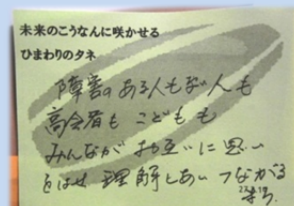 未来のこうなんに咲かせる
ひまわりのタネ
障害のある人もない人も
高令者も こどもも
みんなが お互いに思い
をはせ 理解しあい つながる